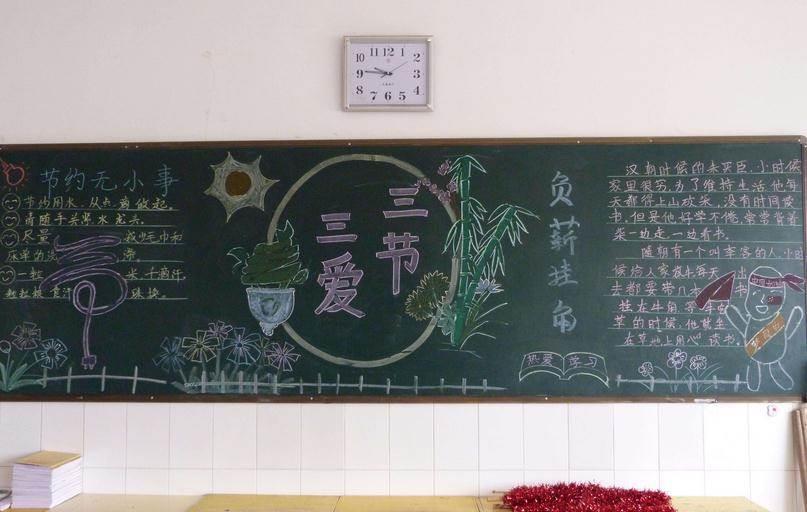 11 12 1
10 2
9 3
8 4
7 6 5
节约无小事
节约用水,从点滴做起。
请随手关紧水龙头。
尽量
减少毛巾和
床单的洗
一粒米千滴汗
粒粒
三爱
三节
负薪挂角
热爱学习
汉朝时候的朱买臣,小时候
家里很穷,为了维持生活,他每
天都得上山砍柴,没有时间读
书,但是他好学不倦,常常背着
柴一边走一边看书。
隋朝有一个叫李密的人,小时
候给人家放牛,每天出
去都要带几本书
挂在牛角,等牛吃
草的时候,他就坐
在草地上用心读书。